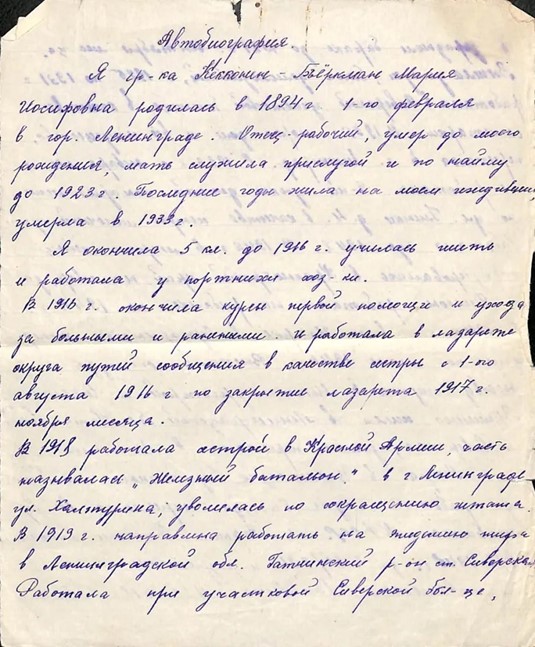 Автобиография
Я гр-ка Кекконин-Бьёркман Мария
Иосифовна родилась в 1894 г 1-го февраля
в гор. Ленинграде. Отец-рабочий, умер до моего
рождения, мать служила прислугой и по найму
до 1923 г. Последние годы жила на моем иждивении,
умерла в 1933 г.
Я окончила 5 кл. до 1916 г. училась шить
и работала у портнихи
В 1916 г. окончила курсы первой помощи и ухода
за больными и ранеными. и работала в лазарете
округа путей сообщения в качестве сестры с 1-го
августа 1916 г по закрытие лазарета 1917 г.
ноября месяца.
В 1918 работала сестрой в Красной Армии, часть
называлась „Железный батальон." в г Ленинграде
ул. Халтурина, уволилась по сокращению штата.
В 1919 г. направлена работать на эпидемию тифа
в Ленинградской обл. Гатчинский р-он ст. Сиверская
Работала при участковой Сиверской бол-це,